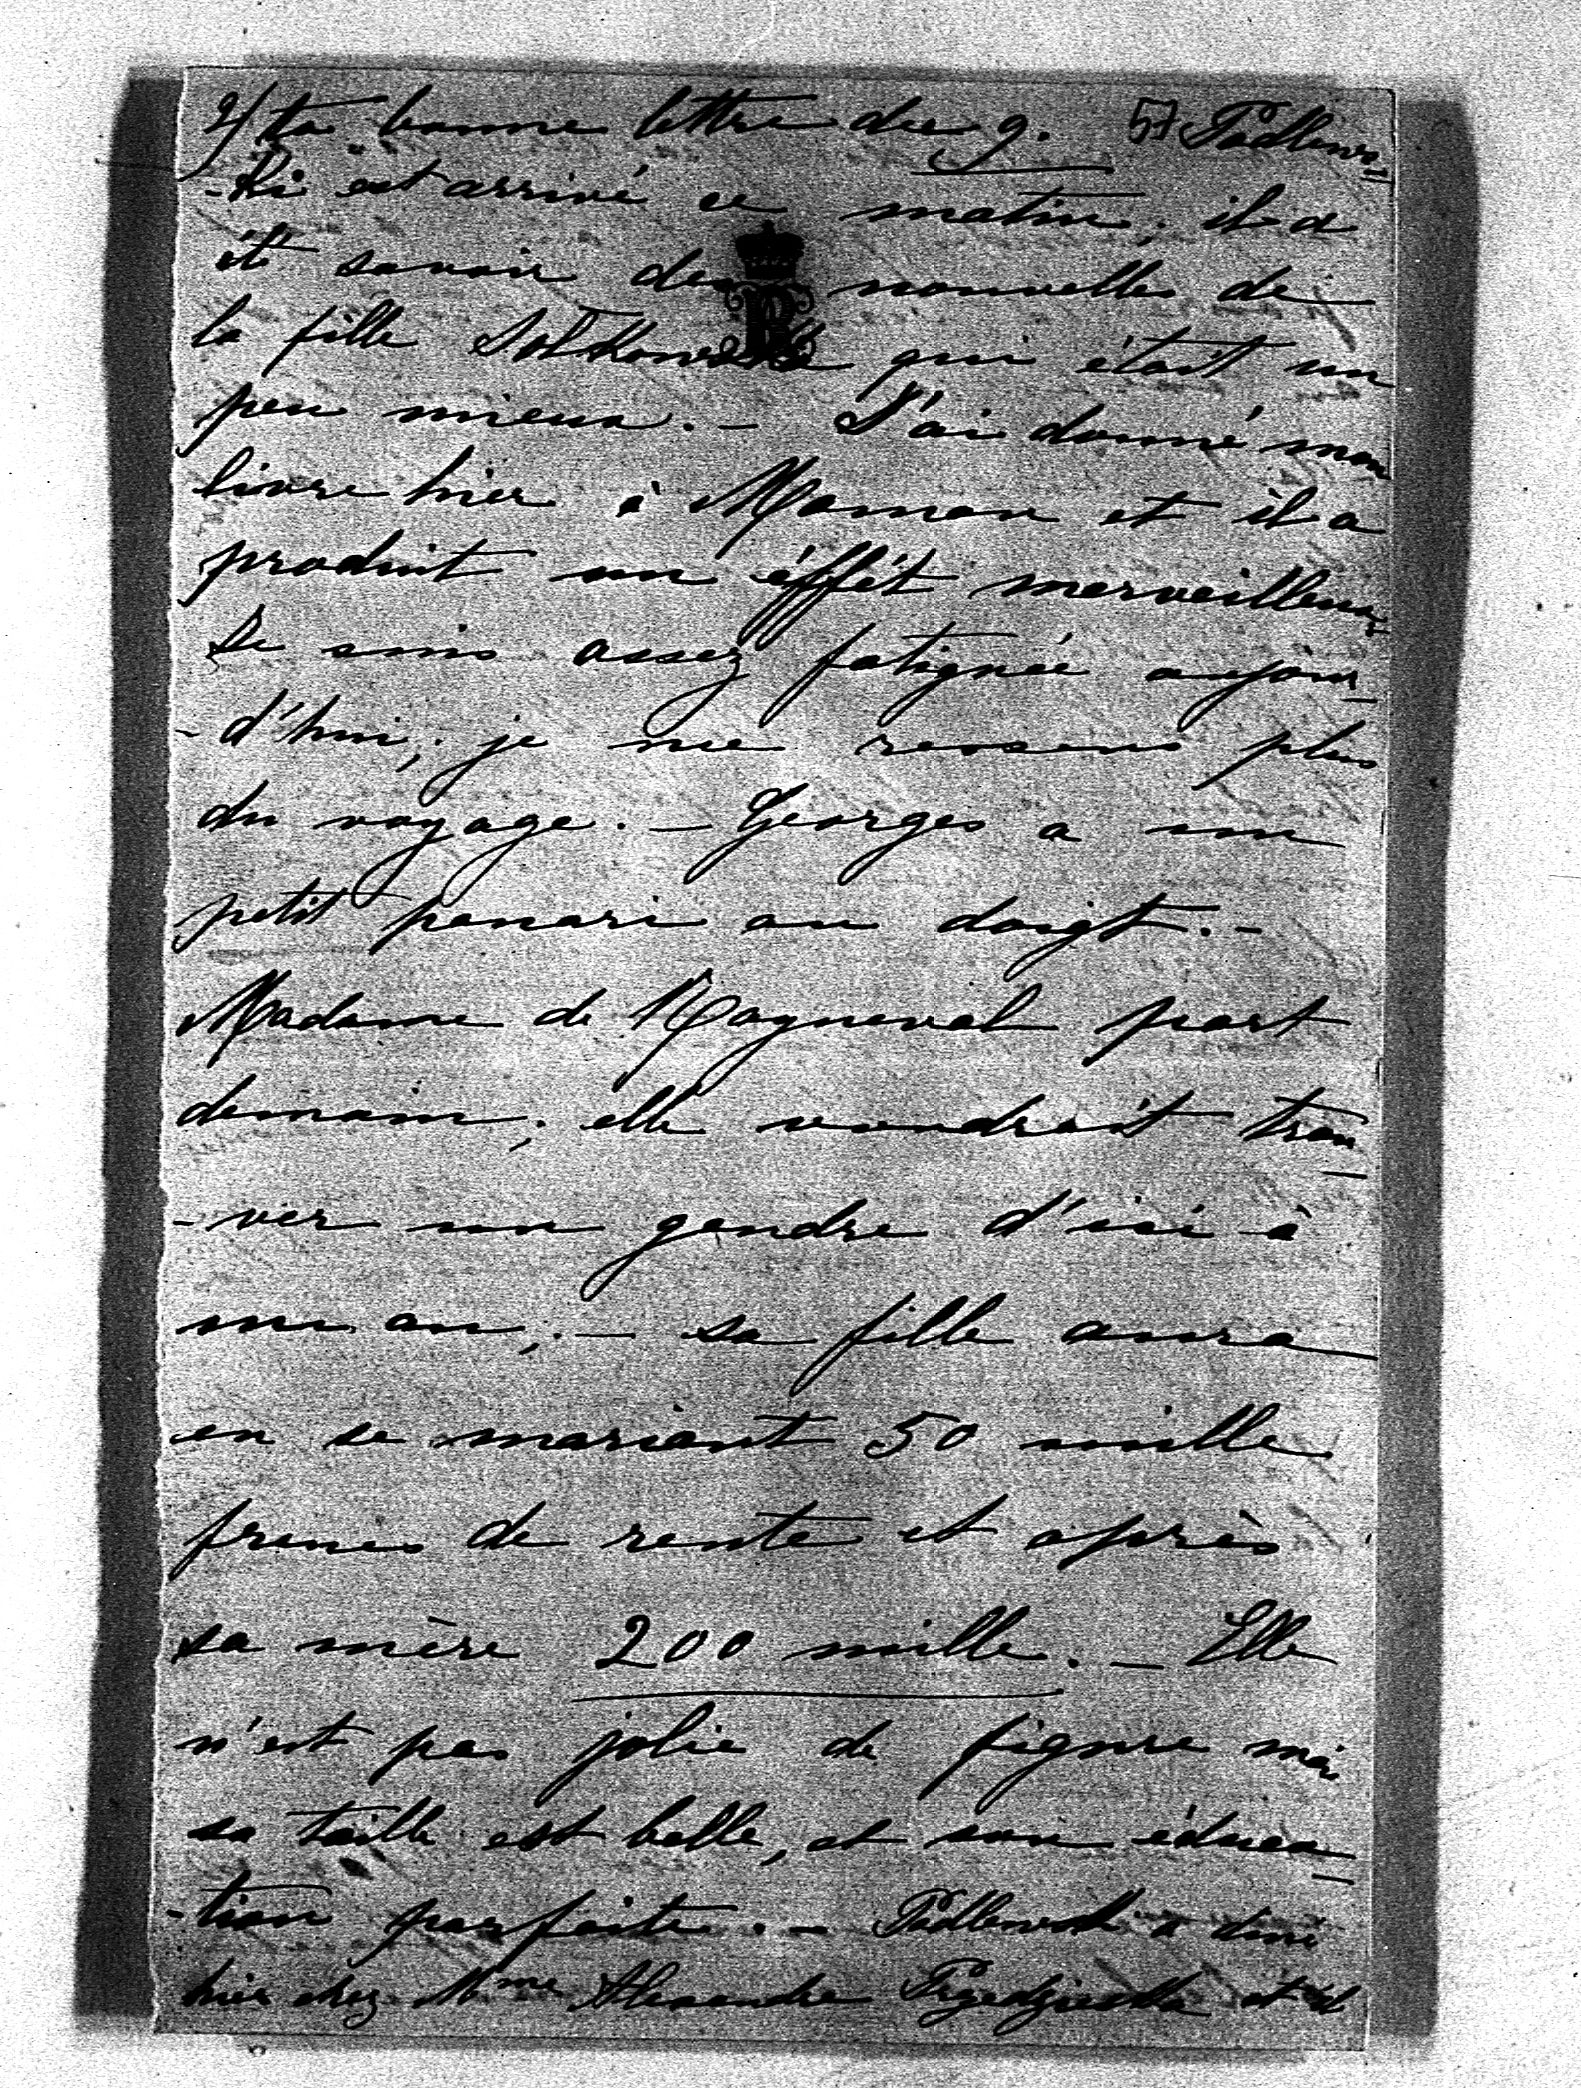 2/ ta bonne lettre du 9. 57 Podlews-
-ki est arrivé ce matin; il a
été savoir des nouvelles de
la fille Soltkowska qui était un
peu mieux. - J'ai donné mon
livre hier à Maman et il a
produit un éffét merveilleux
Je suis assez fatiguée aujour-
-d'hui; je me ressens plus
du voyage. - Georges a un
petit panari au doigt. -
Madame de Rayneval part
demain; elle voudrait trou-
-ver un gendre d'ici à
un an; - sa fille aura
en se mariant 50 mille
francs de rente et après
sa mère 200 mille. - Elle
n'est pas jolie de figure mais
sa taille est belle, et son éduca-
-tion parfaite. - Podlewski a diné
hier chez Mme Alexandre Przezdziecka et il